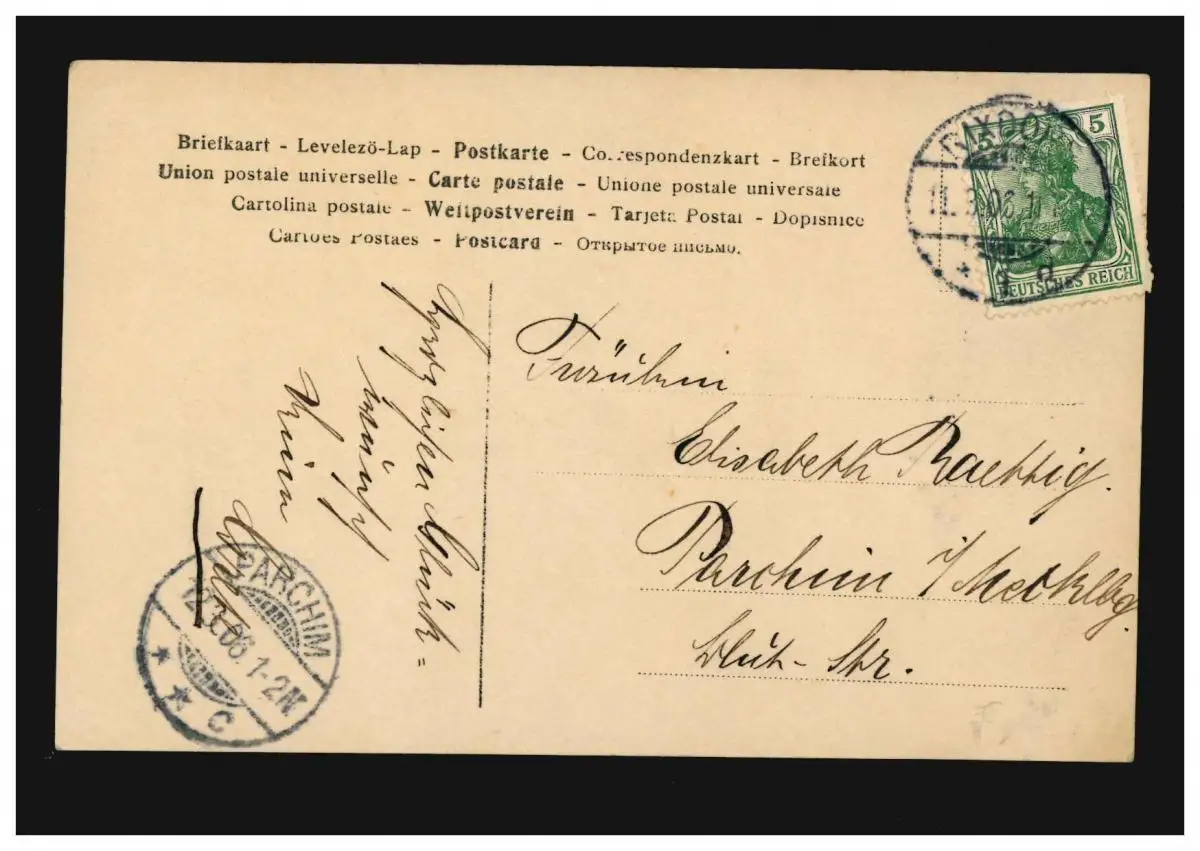 Briefkaart - Levelezö-Lap - Postkarte - Correspondenzkart - Brefkort
Union postale universelle - Carte postale - Unione postale universale
Cartolina postale - Weltpostverein - Tarjeta Postal - Dopisnice
Cartões Postaes - Postcard - Открытое письмо.
5 5
DEUTSCHES REICH
RIXDORF
11.3.06.11
* 3 d
Fräulein
Elisabeth Raettig.
Parchim i/Mecklbg.
Blut-Str.
Herzlichen Glück=
wunsch
PARCHIM
12.3.06.1-2N.
* * c